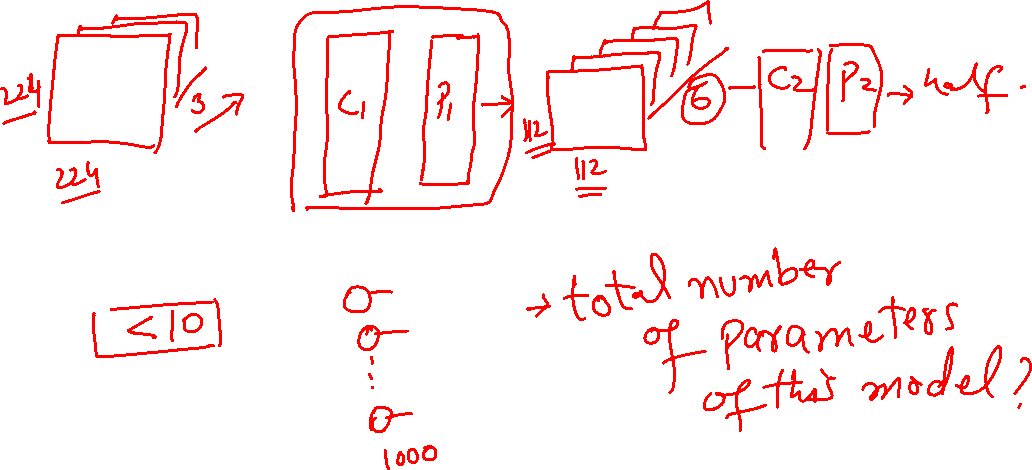 224
224
3
C1
P1
112
112
6
C2
P2
half.
<10
1000
total number
of parameters
of this model?